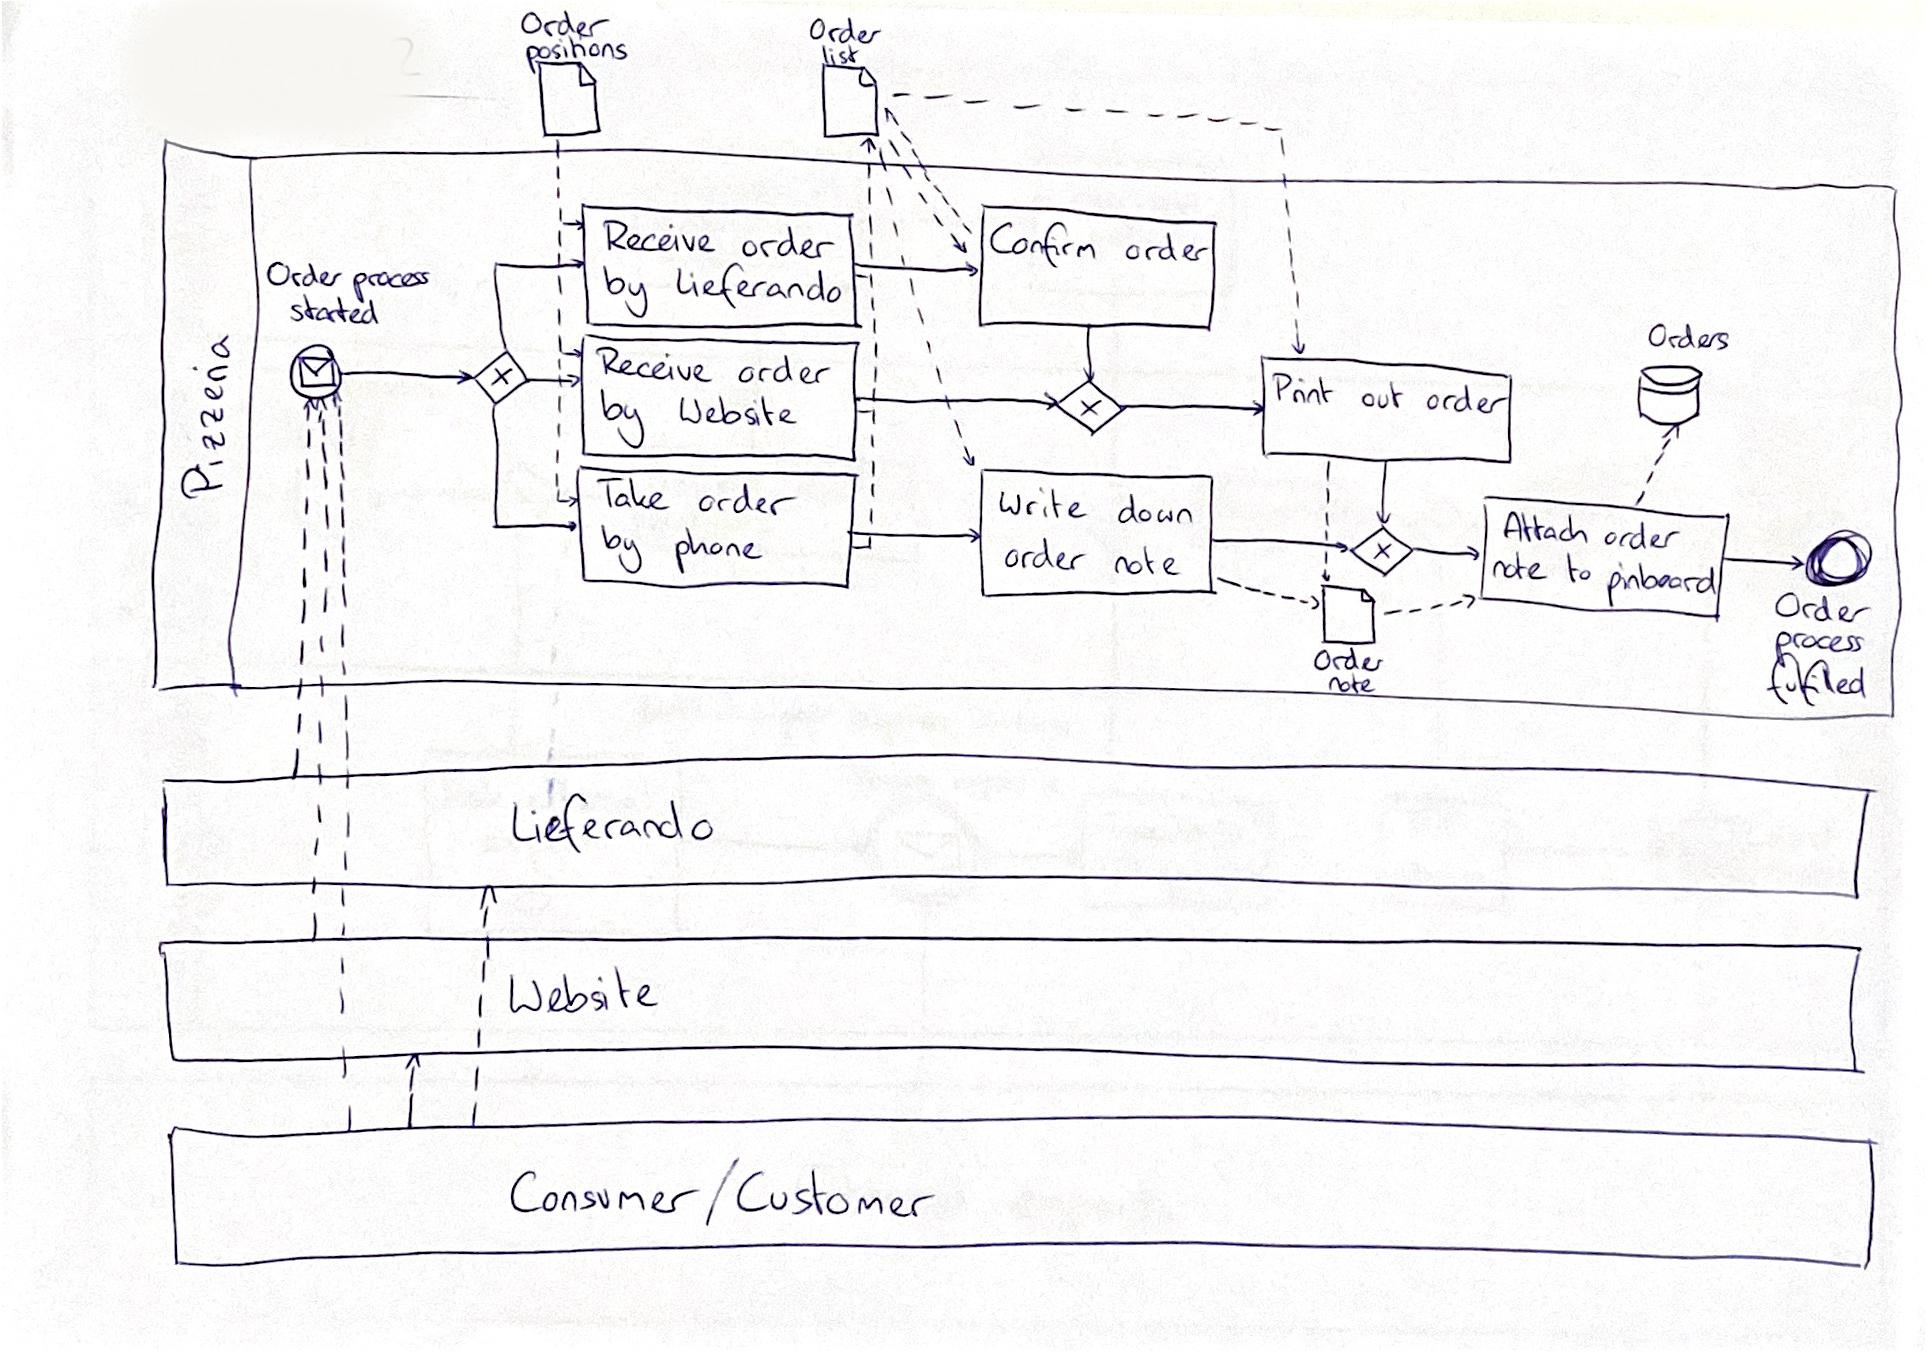 2
Order
positions
Order
list
Pizzeria
Order process
started
Receive order
by Lieferando
Receive order
by Website
Take order
by phone
Confirm order
Write down
order note
Print out order
Order
note
Orders
Attach order
note to pinboard
Order
process
fulfilled
Lieferando
Website
Consumer/Customer